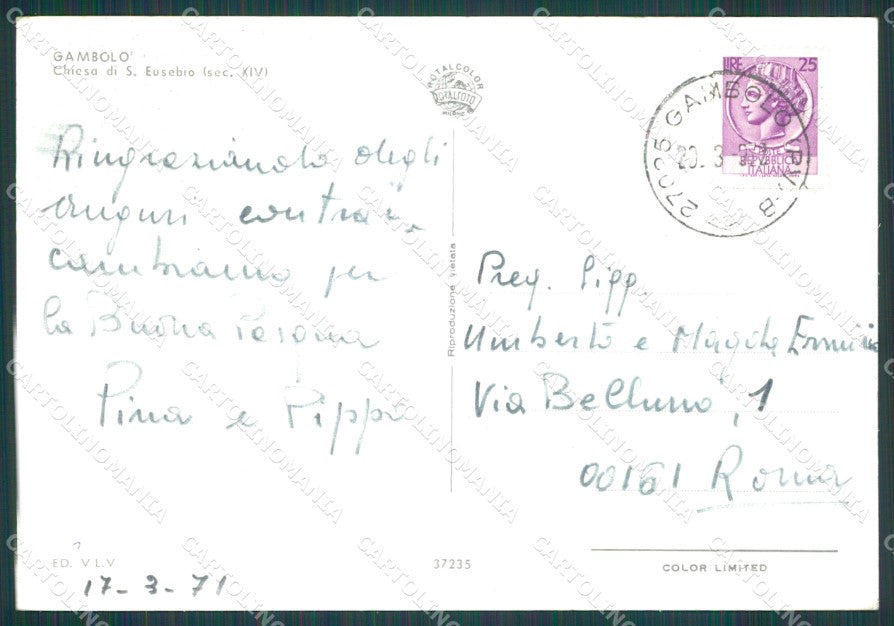 GAMBOLO'
Chiesa di S. Eusebio (sec. XIV)
ROTALCOLOR
ROTALFOTO
MILANO
LIRE 25
POSTE
REPUBBLICA
ITALIANA
27025 GAMBOLO'
20. 3
Ringraziando degli
auguri contrac
cambiamo per
la Buona Pasqua
Pina e Pippo
Riproduzione vietata
Preg. Sigg.
Umberto e Magda
Via Belluno, 1
00161 Roma
ED. V.L.V
17-3-71
37235
COLOR LIMITED
CARTOLINOMANIA